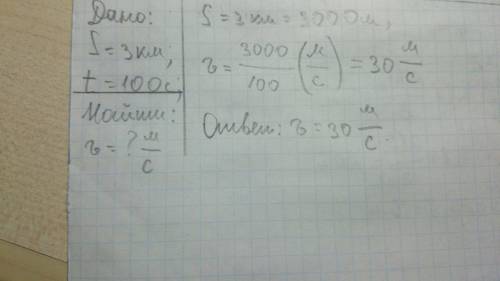 Дано:
S = 3 км;
t = 100 с;
Найти:
v = ? м/с
S = 3 км = 3000 м,
v = 3000/100 (м/с) = 30 м/с
Ответ: v = 30 м/с.